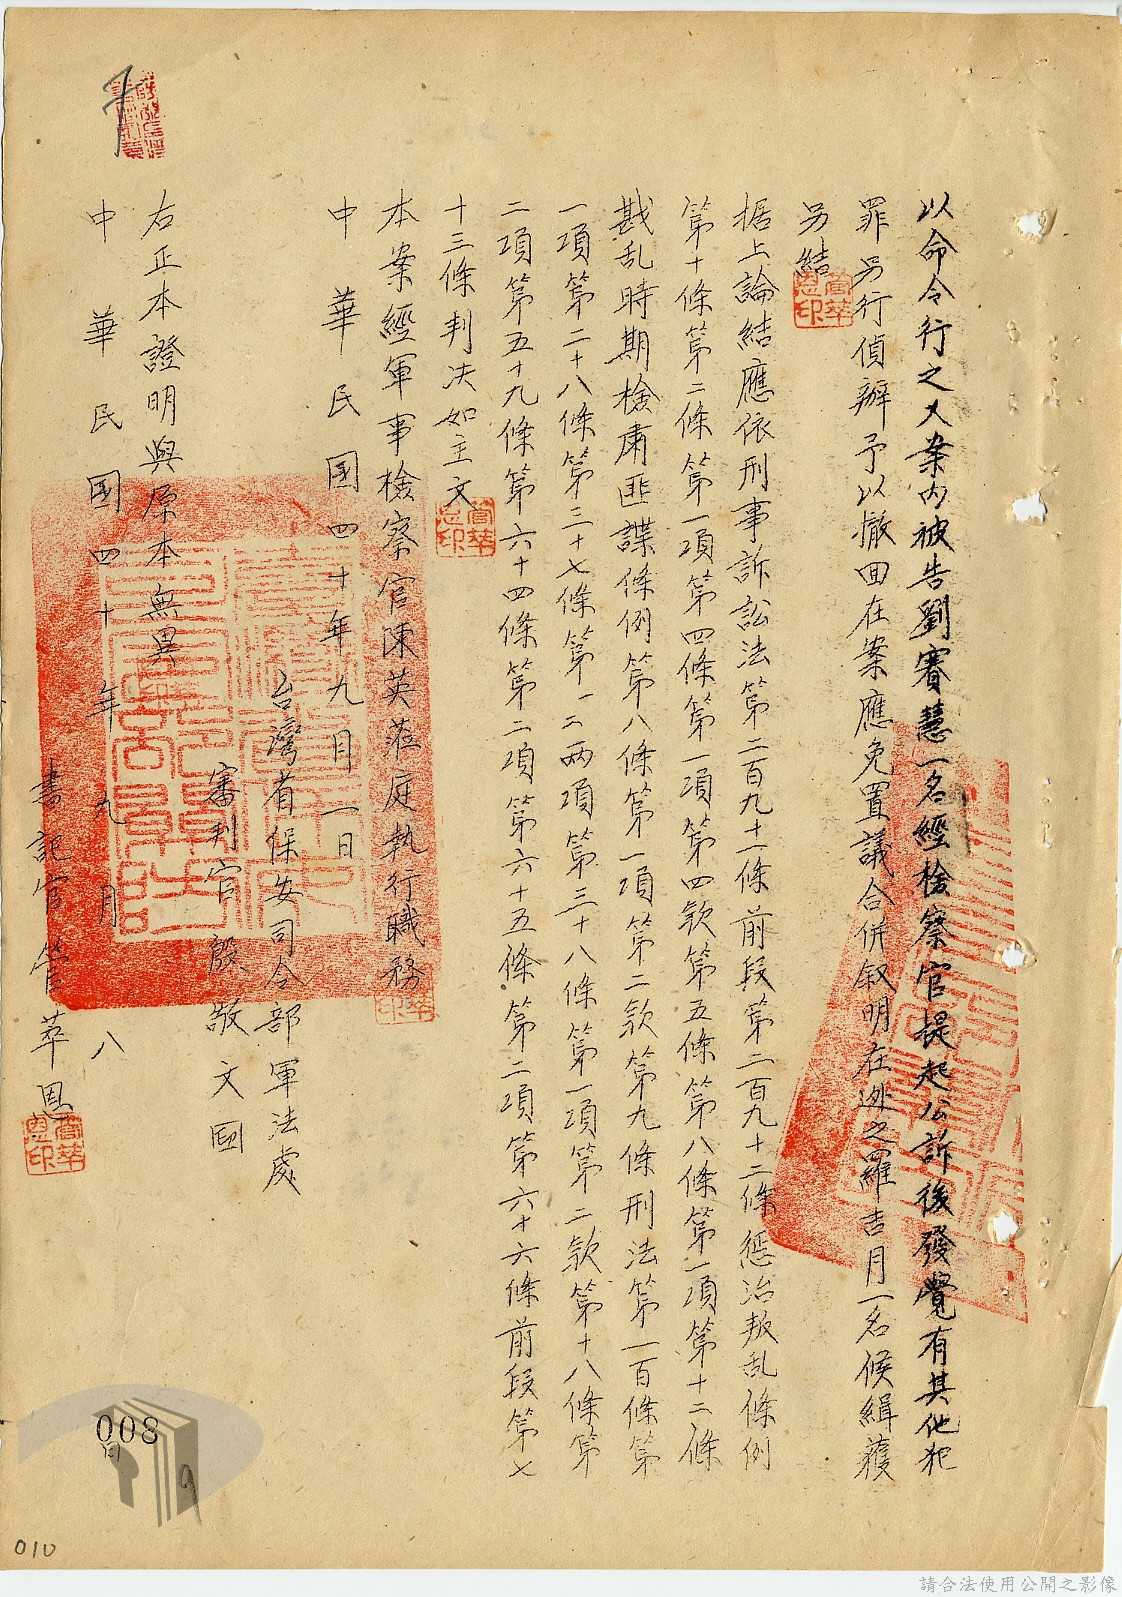 以命令行之又案內被告劉賽慧一名經檢察官提起公訴後發覺有其他犯
罪另行偵辦予以撤回在案應免置議合併叙明在逃之羅吉月一名候緝獲
另結
据上論結應依刑事訴訟法第二百九十一條前段第二百九十二條惩治叛乱條例
第十條第二條第一項第四條第一項第四款第五條第八條第一項第十二條
戡乱時期檢肅匪諜條例第八條第一項第二款第九條刑法第一百條第
一項第二十八條第三十七條第一二兩項第三十八條第一項第二款第十八條第
二項第五十九條第六十四條第二項第六十五條第二項第六十六條前段第七
十三條判決如主文
本案經軍事檢察官陳英蒞庭執行職務
中華民國四十年九月一日
台灣省保安司令部軍法處
審判官殷敬文
右正本證明與原本無異
中華民國四十年九月八日
書記官管萃恩
管萃恩印
008
9
010
請合法使用公開之影像